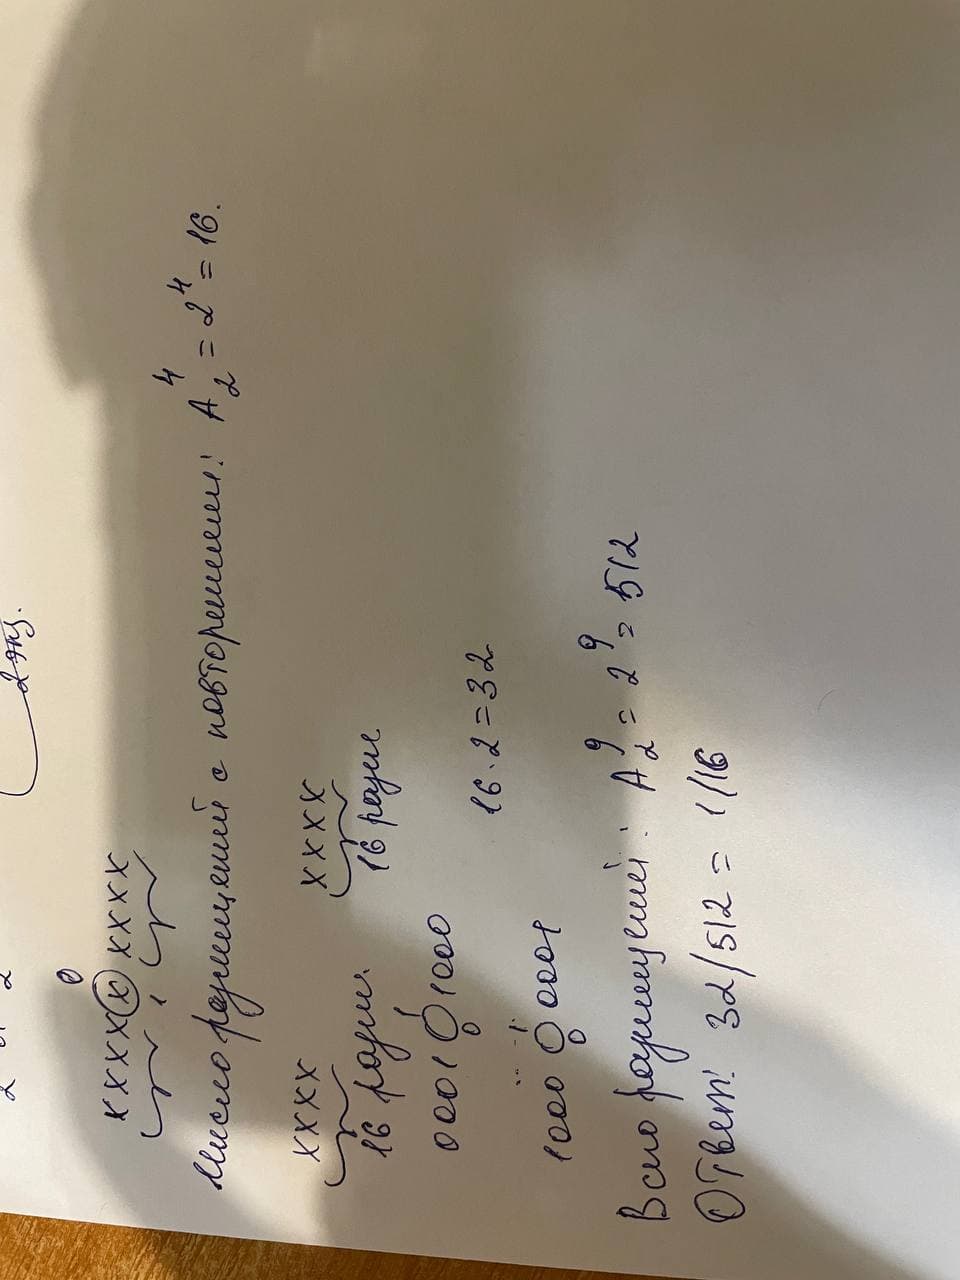 2 экз.
0
XXXX(X)XXXX
1
Число размещений с повторениями: A₂⁴ = 2⁴ = 16.
XXXX XXXX
16 разл 16 разл
0001 0 1 1000
16 · 2 = 32
1000 0 1 0001
Всего размещений: A₂⁹ = 2⁹ = 512
Ответ: 32/512 = 1/16